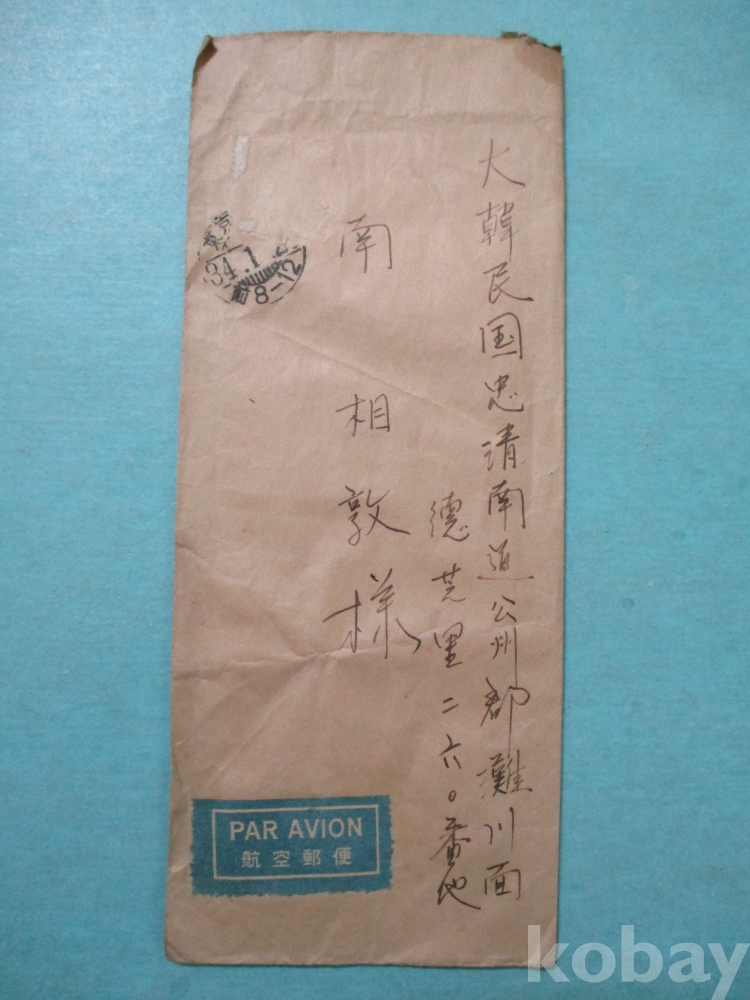 大韓民国忠清南道公州郡灘川面
德芝里二六〇番地
南相敦様
34.1
8-12
PAR AVION
航空郵便
kobay